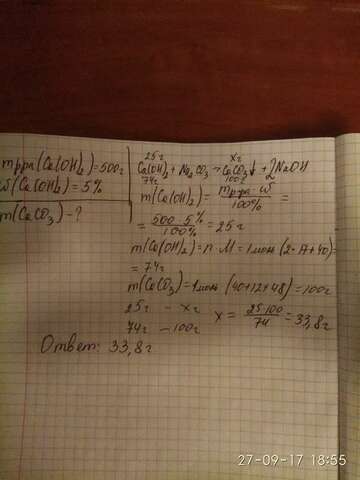 mр-ра(Ca(OH)₂)=500г
ω(Ca(OH)₂)=5%
m(CaCO₃)-?
25г хг
Ca(OH)₂+Na₂CO₃→CaCO₃↓+2NaOH
74г 100г
m(Ca(OH)₂)= mр-ра·ω / 100% =
= 500·5% / 100% = 25г
m(Ca(OH)₂)=n·M=1моль(2·17+40)=
=74г
m(CaCO₃)=1моль(40+12+48)=100г
25г - хг
74г - 100г
x = 25·100 / 74 = 33,8г
Ответ: 33,8г
27-09-17 18:55